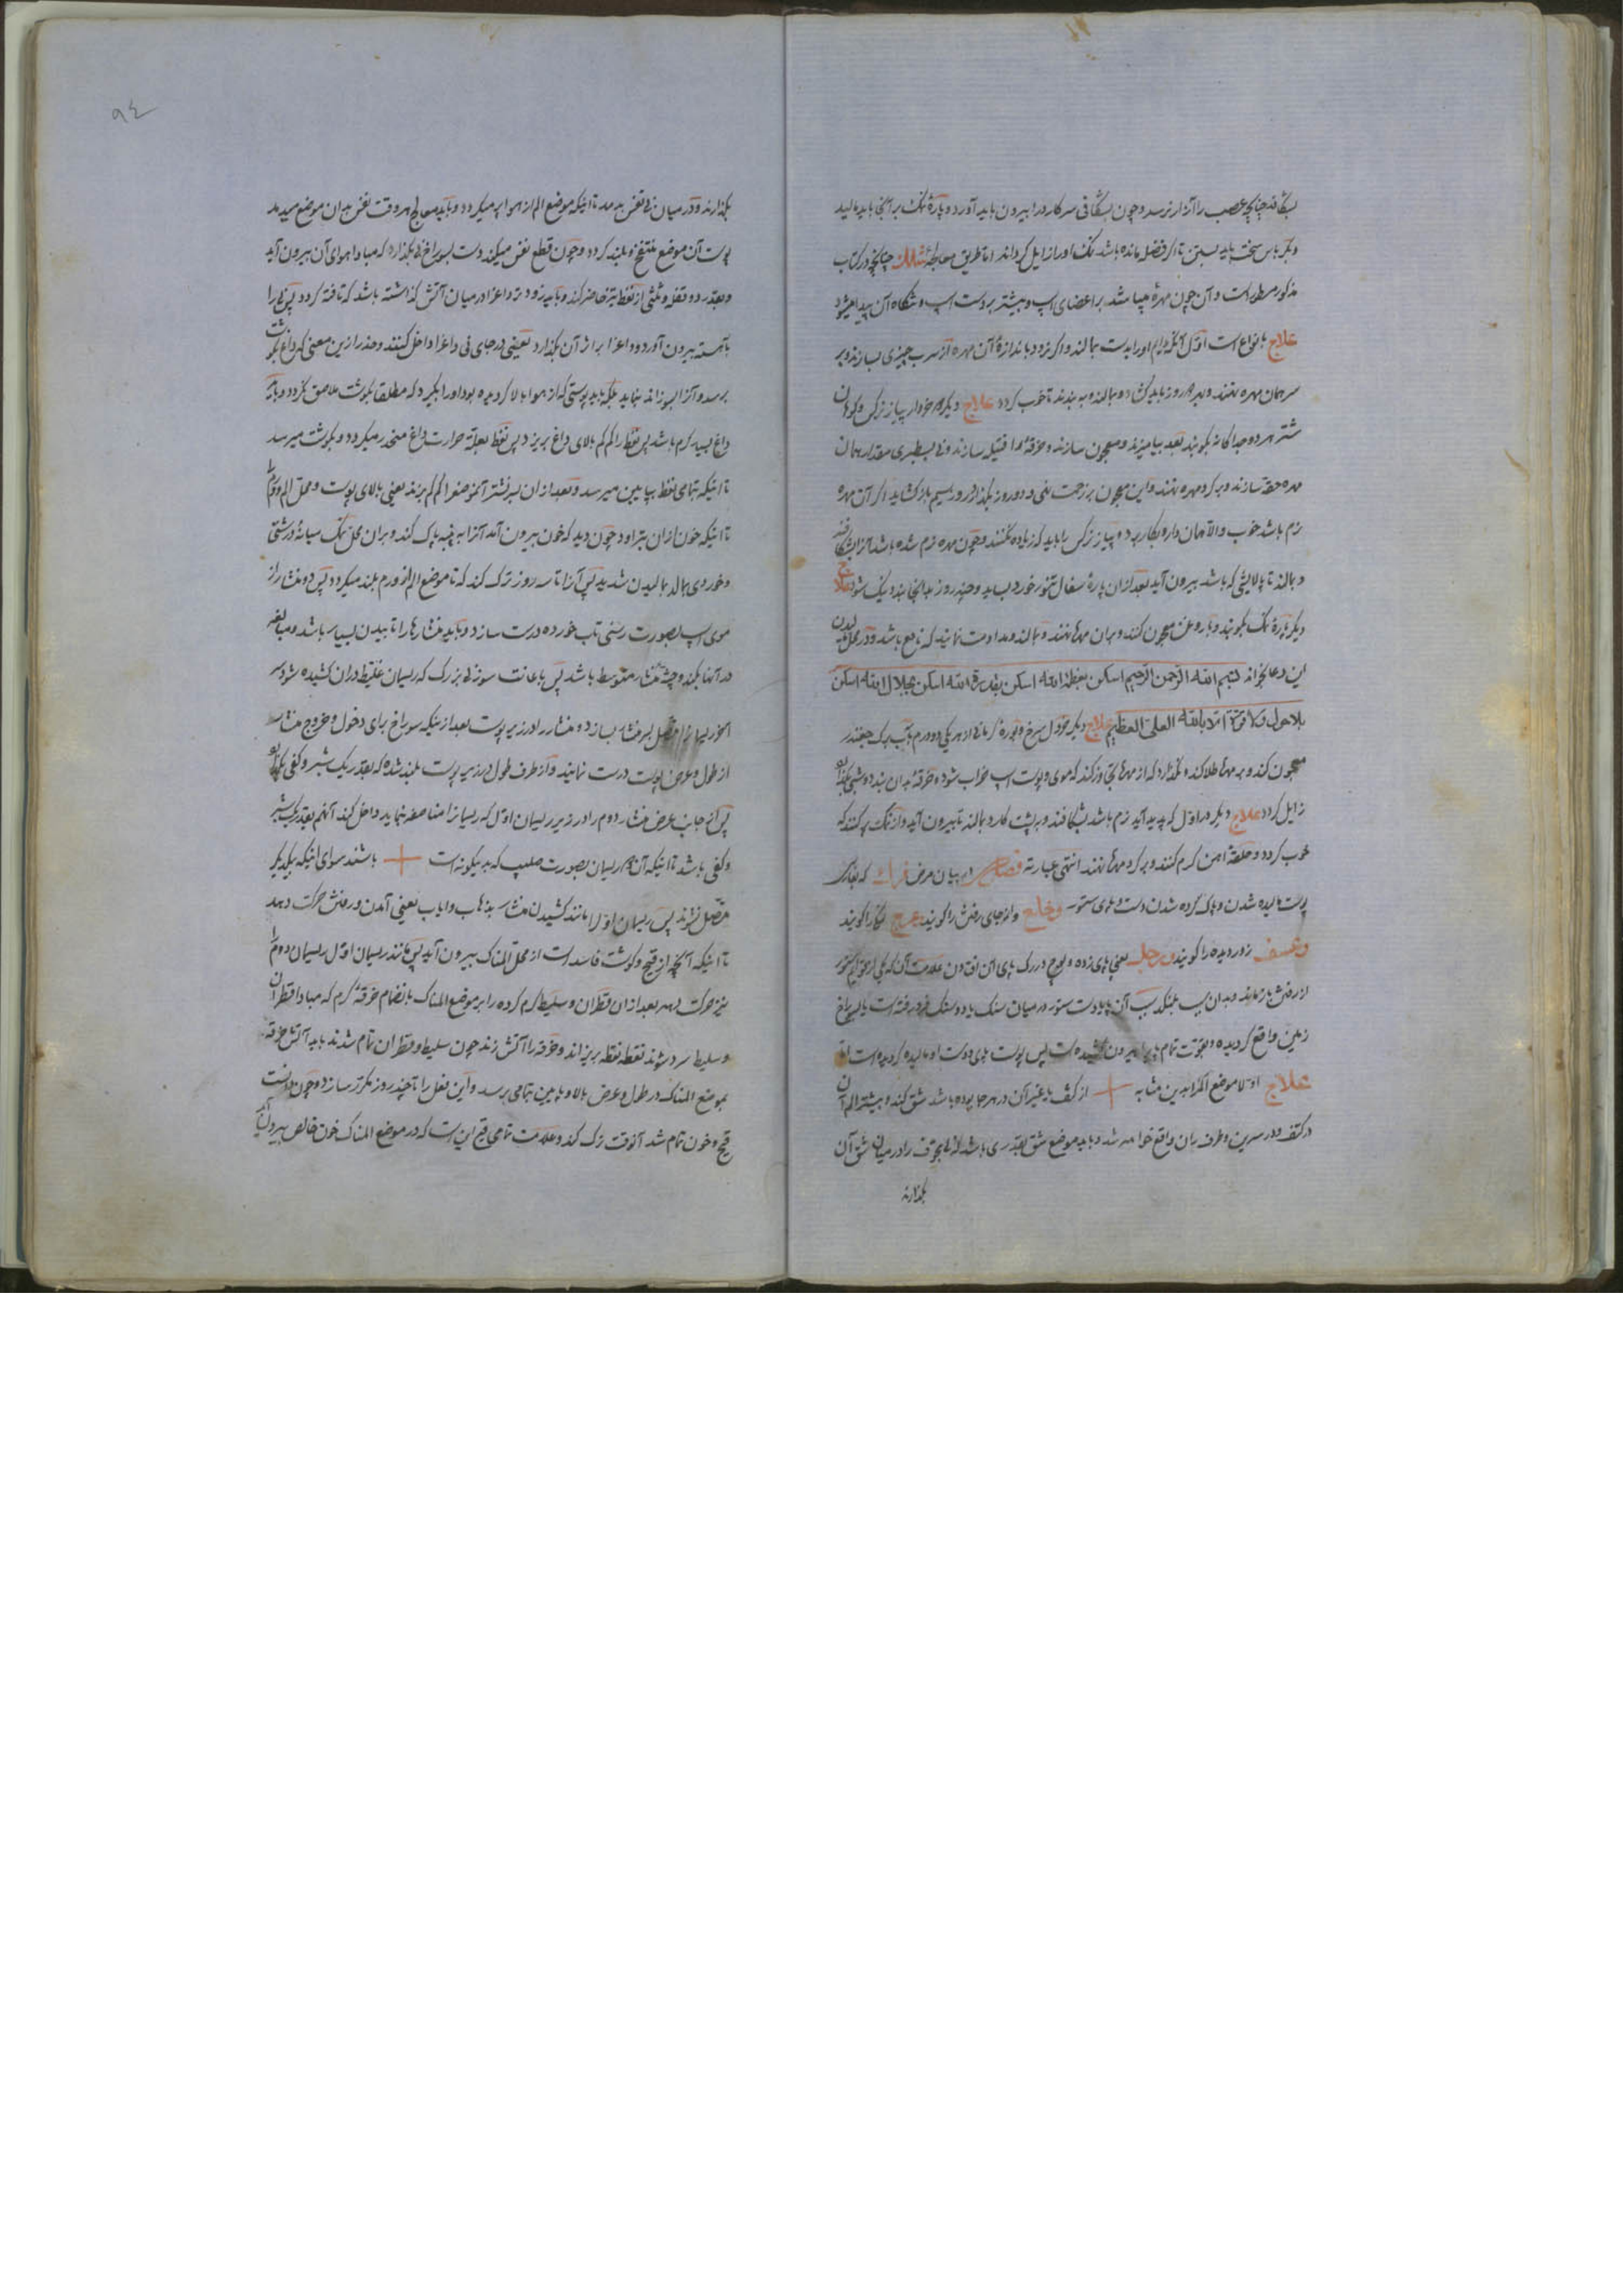 بشکافند چنانچه عصب را آزار نرسد و چون بشکافی سر کارد را بیرون باید آورد و پارهٔ نمک بر آنجا باید مالید
و بکرباس سخت باید بستن تا اگر فضل مانده باشد نمک او را زایل گرداند اما طریق معالجهٔ چنانچه در کتاب
مذکور مسطور است و آن چون مهرهٔ میباشد بر اعضای اسپ و بیشتر بر دست اسپ و شکاه آن پیدا میشود
علاج بانواع است اول آنکه او را بدست بمالند و اگر نرود باندازهٔ آن مهره از سرب چیزی بسازند و بر
سر همان مهره نهند و ببندند هر روز باید گشاد و بمالند و به بندند تا خوب گردد علاج دیگر پیاز نرگس و کوهان
شتر هر دو جداگانه بکوبند بعد بیامیزند و معجون سازند و خرقه را فتیله سازند بسطبری مقدار همان
مهره حلقه سازند و بر گرد مهره نهند و این معجون بر زحمت نهی و دو روز بگذارد روز سیم باز گشاید اگر آن مهره
نرم باشد خوب والا همان دارو بکار برد و پیاز نرگس را باید که زیاده نکنند و چون مهره نرم شده باشد آنرا بشکافند
و بمالند تا پالایشی که باشد بیرون آید بعد از آن پارهٔ سفال تنور خورد بساید و چند روز بدانجا بندد نیک شود علاج
دیگر پارهٔ نمک بکوبند و با روغن معجون کنند و بر آن مهرها نهند و بمالند و مداومت نمایند که نافع باشد و در محل مالیدن
این دعا بخواند بسم الله الرحمن الرحیم اسکن بعظمة الله اسکن بقدرة الله اسکن بجلال الله اسکن
بلا حول ولا قوة الا بالله العلی العظیم علاج دیگر خردل سرخ و بورهٔ از هر یکی دو درم بآب برگ چغندر
معجون کند و بر مهرها طلا کند و نگذارد که از مهرها تجاوز کند که موی و پوست اسپ خراب شود و خرقه بدان بندد و شبی بگذارد
زایل گردد علاج دیگر در اول که پدید آید نرم باشد بشکافند و به پشت کارد بمالند تا بیرون آید و از نمک پر کنند که
خوب گردد و حلقهٔ آهن گرم کنند و بر گرد مهرها نهند انتهی عبارته در بیان مرض که بفارسی
پوست مالیده شدن و پاک کرده شدن دست و پای ستور وخلع و از جای رفتن را گویند عرج لنگ را گویند
وعسف زور دیده را گویند ورجل یعنی پای زده و علامت آن که
از رفتن باز ماند و بدان سبب بلنگد سبب آن پا یا دست ستور در میان سنگ یا دو سنگ فرو رفته است یا بسوراخ
زمین واقع گردیده و بقوت تمام پا را بیرون کشیده است پس پوست پای و دست او مالیده گردیده است
علاج اولا موضع الم را بدین مثابه + از کتف یا غیر آن در هر جا بوده باشد شق کند و بیشتر الم آن
در کتف و در سرین و طرف ران واقع خواهد شد و باید موضع شق بقدری باشد که مجوف را در میان شق آن
بگذارند
٩٤
بگذارند و در میان نی نفس بدمد تا اینکه موضع الم از هوا پر میگردد و باید معالج هر وقت نفس بدان موضع میدمد
پوست آن موضع منتفخ و بلند گردد و چون قطع نفس میکند دست بسوراخ نی بگذارد که مبادا هوای آن بیرون آید
و بقدر دو قفله و ثلثی از نفط تیز حاضر کند و باید زودتر داغ را در میان آتش گذاشته باشد که تافته گردد پس نی را
بآهسته بیرون آورد و داغ را بر اثر آن بگذارد یعنی در جای نی داغ را داخل کنند و حذر ازین معنی که داغ بگوشت
برسد و آنرا بسوزاند بلکه باید پوستی که از هوا بالا گردیده بود او را بگیرد که مطلقا بگوشت ملاصق نگردد و باز
داغ بسیار گرم باشد پس نفط را کم کم بالای داغ بریزد پس نفط بعلت حرارت داغ منحدر میگردد و بگوشت میرسد
تا اینکه تمامی نفط بپایین میرسد و بعد از آن بسر نشتر آنموضع را کم کم بزند یعنی بالای پوست و محل الم و ورم را
تا اینکه خون از آن بتراود و چون دید که خون بیرون آمد آنرا به پنبه پاک کند و بر آن محل نمک میانهٔ درشتی
و خوردی بمالد بمالیدن شدید پس آنرا تا سه روز ترک کند که تا موضع الم از ورم بلند میگردد پس دو منشار از
موی اسپ بصورت رسنی تاب خورده درست سازد و باید منشارها را تابیدن بسیار باشد و مبالغه
در آنها بکند و جثه منشار متوسط باشد پس باعانت سوزنی بزرگ که ریسمان غلیظ در آن کشیده شود سر
آخر ریسمان را متصل بسر منشار بسازد و منشار را در زیر پوست بعد از اینکه سوراخ برای دخول و خروج منشار
از طول و عرض پوست درست نمایند و از طرف طول در زیر پوست بلند شده که بقدر یک شبر و کفی بگذارد
پس از جانب عرض منشار دوم را در زیر ریسمان اول که ریسمان را مناصفه نماید داخل کند آنهم بقدر یک شبر
و کفی باشد تا اینکه آن دو ریسمان بصورت صلیب که بدینگونه است + باشند سوای اینکه بیکدیگر
متصل نشوند پس ریسمان اول را مانند کشیدن منشار بذهاب و ایاب یعنی آمدن و رفتن حرکت دهد
تا اینکه آنچه از قیح و گوشت فاسد است از محل المناک بیرون آید پس مانند ریسمان اول ریسمان دوم را
نیز حرکت دهد بعد از آن قطران و سلیط گرم کرده را بر موضع المناک بانضمام خرقهٔ گرم که مبادا قطران
و سلیط سرد شوند نقطه نقطه بریزاند و خرقه را آتش زند چون سلیط و قطران تمام شدند باید آتش خرقه
بموضع المناک در طول و عرض بالا و پایین تمامی برسد و این فعل را تا چند روز مکرر سازد و چون دانست
قیح و خون تمام شد آنوقت ترک کند و علامت تمامی قیح این است که در موضع المناک خون خالص بیرون آید